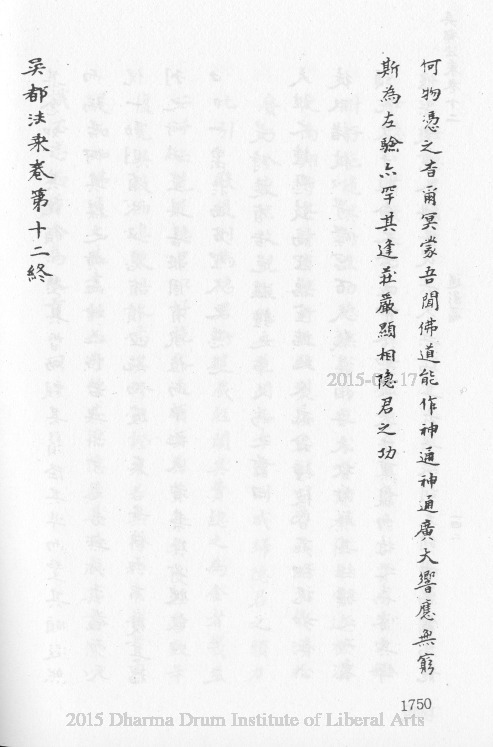 何物憑之杳爾冥蒙吾聞佛道能作神通神通廣大響應無窮
斯為左驗亦罕其逢莊嚴顯相隱君之功
吳都法乘卷第十二終
1750
2015 Dharma Drum Institute of Liberal Arts